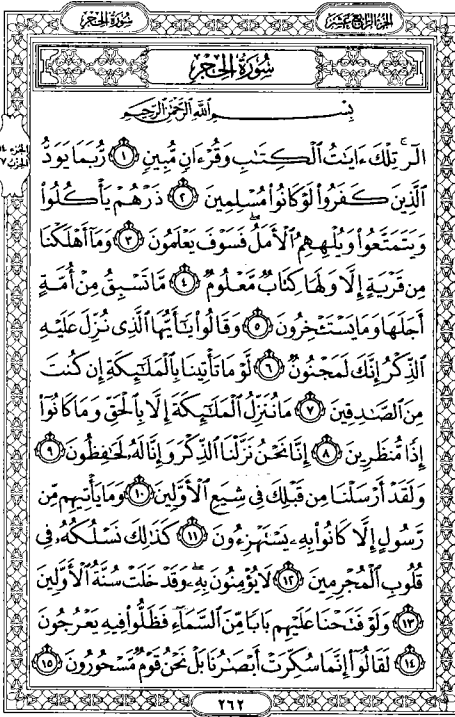 الجزء الرابع عشر سورة الحجر
سورة الحجر
بسم الله الرحمن الرحيم
الٓر تِلْكَ ءَايَٰتُ ٱلْكِتَٰبِ وَقُرْءَانٍ مُّبِينٍ ١ رُّبَمَا يَوَدُّ
ٱلَّذِينَ كَفَرُوا۟ لَوْ كَانُوا۟ مُسْلِمِينَ ٢ ذَرْهُمْ يَأْكُلُوا۟
وَيَتَمَتَّعُوا۟ وَيُلْهِهِمُ ٱلْأَمَلُ فَسَوْفَ يَعْلَمُونَ ٣ وَمَآ أَهْلَكْنَا
مِن قَرْيَةٍ إِلَّا وَلَهَا كِتَابٌ مَّعْلُومٌ ٤ مَّا تَسْبِقُ مِنْ أُمَّةٍ
أَجَلَهَا وَمَا يَسْتَـْٔخِرُونَ ٥ وَقَالُوا۟ يَٰٓأَيُّهَا ٱلَّذِى نُزِّلَ عَلَيْهِ
ٱلذِّكْرُ إِنَّكَ لَمَجْنُونٌ ٦ لَّوْ مَا تَأْتِينَا بِٱلْمَلَٰٓئِكَةِ إِن كُنتَ
مِنَ ٱلصَّٰدِقِينَ ٧ مَا نُنَزِّلُ ٱلْمَلَٰٓئِكَةَ إِلَّا بِٱلْحَقِّ وَمَا كَانُوٓا۟
إِذًا مُّنظَرِينَ ٨ إِنَّا نَحْنُ نَزَّلْنَا ٱلذِّكْرَ وَإِنَّا لَهُۥ لَحَٰفِظُونَ ٩
وَلَقَدْ أَرْسَلْنَا مِن قَبْلِكَ فِى شِيَعِ ٱلْأَوَّلِينَ ١٠ وَمَا يَأْتِيهِم مِّن
رَّسُولٍ إِلَّا كَانُوا۟ بِهِۦ يَسْتَهْزِءُونَ ١١ كَذَٰلِكَ نَسْلُكُهُۥ فِى
قُلُوبِ ٱلْمُجْرِمِينَ ١٢ لَا يُؤْمِنُونَ بِهِۦ ۖ وَقَدْ خَلَتْ سُنَّةُ ٱلْأَوَّلِينَ
١٣ وَلَوْ فَتَحْنَا عَلَيْهِم بَابًا مِّنَ ٱلسَّمَآءِ فَظَلُّوا۟ فِيهِ يَعْرُجُونَ
١٤ لَقَالُوٓا۟ إِنَّمَا سُكِّرَتْ أَبْصَٰرُنَا بَلْ نَحْنُ قَوْمٌ مَّسْحُورُونَ ١٥
٢٦٢